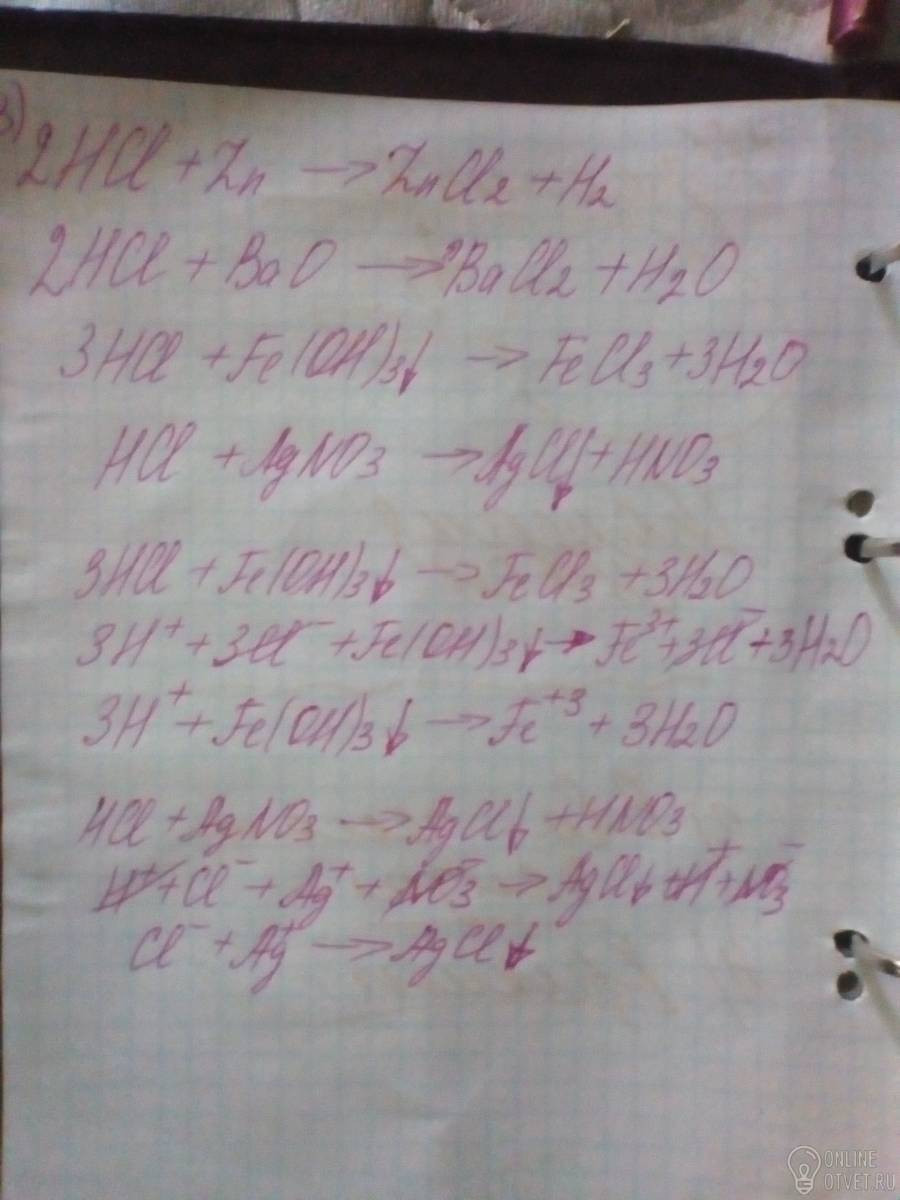 3)
2HCl + Zn → ZnCl₂ + H₂
2HCl + BaO → BaCl₂ + H₂O
3HCl + Fe(OH)₃↓ → FeCl₃ + 3H₂O
HCl + AgNO₃ → AgCl↓ + HNO₃
3HCl + Fe(OH)₃↓ → FeCl₃ + 3H₂O
3H⁺ + 3Cl⁻ + Fe(OH)₃↓ → Fe³⁺ + 3Cl⁻ + 3H₂O
3H⁺ + Fe(OH)₃↓ → Fe⁺³ + 3H₂O
HCl + AgNO₃ → AgCl↓ + HNO₃
H⁺ + Cl⁻ + Ag⁺ + NO₃⁻ → AgCl↓ + H⁺ + NO₃⁻
Cl⁻ + Ag⁺ → AgCl↓
ONLINE
OTVET.RU